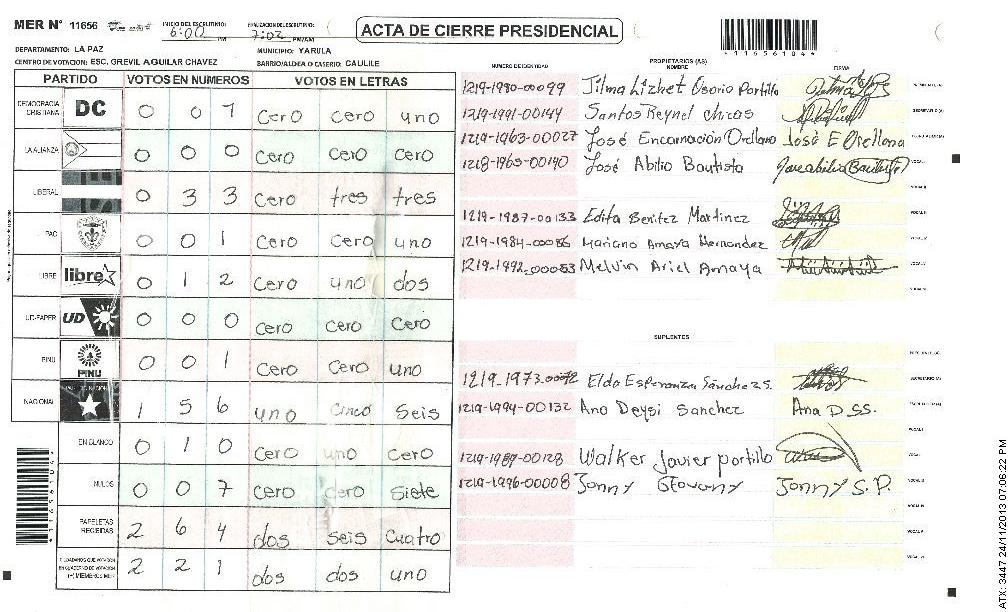 MER Nº 11656
INICIO DEL ESCRUTINIO: 6:00 PM
FINALIZACION DEL ESCRUTINIO: 7:02 PM/AM
ACTA DE CIERRE PRESIDENCIAL
*11656104*
DEPARTAMENTO: LA PAZ
MUNICIPIO: YARULA
CENTRO DE VOTACION: ESC. GREVIL AGUILAR CHAVEZ
BARRIO/ALDEA O CASERIO: CAULILE
PARTIDO VOTOS EN NUMEROS VOTOS EN LETRAS
DEMOCRACIA CRISTIANA DC 0 0 1 Cero Cero uno
LA ALIANZA 0 0 0 Cero Cero Cero
LIBERAL 0 3 3 Cero tres tres
PAC 0 0 1 Cero Cero uno
LIBRE libre 0 1 2 Cero uno dos
UD-FAPER UD 0 0 0 Cero Cero Cero
PINU PINU 0 0 1 Cero Cero uno
NACIONAL 1 5 6 uno Cinco Seis
EN BLANCO 0 1 0 Cero uno Cero
NULOS 0 0 7 Cero Cero Siete
PAPELETAS RECIBIDAS 2 6 4 dos seis Cuatro
CIUDADANOS QUE VOTARON EN CUADERNO DE VOTACION (+) MIEMBROS MER 2 2 1 dos dos uno
NUMERO DE IDENTIDAD
PROPIETARIOS (AS)
NOMBRE
FIRMA
1219-1980-00099 Jilma Lizhet Osorio Portillo
1219-1991-00144 Santos Reynel Chicas
1219-1963-00027 José Encarnación Orellana José E Orellana
1218-1965-00140 José Abilio Bautista
1219-1987-00133 Edita Benitez Martinez
1219-1984-00086 Mariano Amaya Hernandez
1219-1992-00053 Melvin Ariel Amaya
SUPLENTES
1219-1973-00092 Elda Esperanza Sánchez S.
1219-1994-00132 Ana Deysi Sanchez Ana D SS.
1219-1989-00128 Walker Javier portillo
1219-1996-00008 Jonny Giovany Jonny S.P.
ATX: 3447 24/11/2013 07:06:22 PM